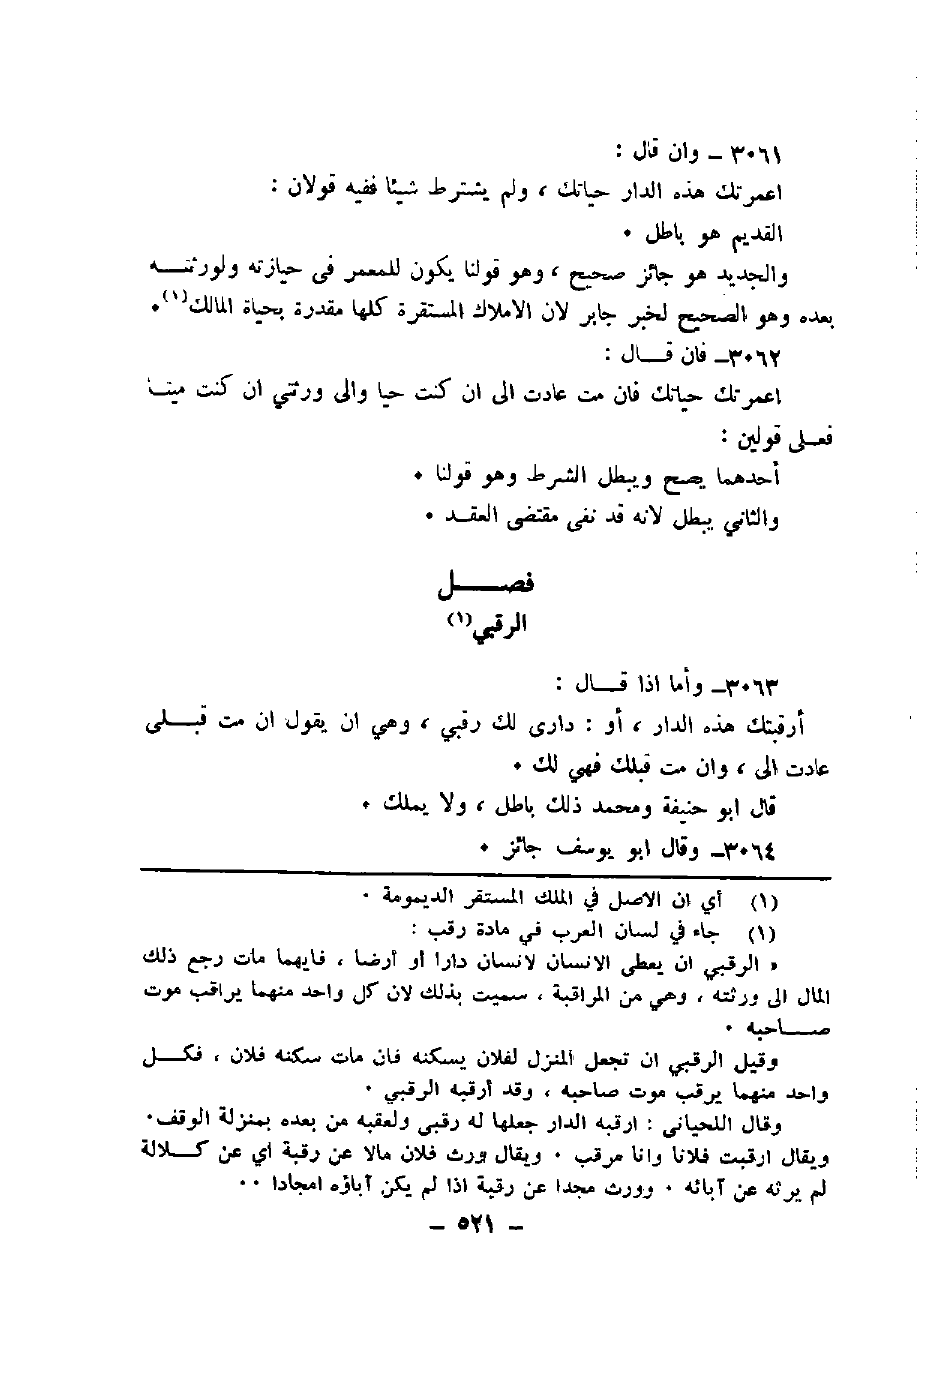 ٣٠٦١ – وان قال :
اعمرتك هذه الدار حياتك ، ولم يشترط شيئا ففيه قولان :
القديم هو باطل •
والجديد هو جائز صحيح ، وهو قولنا يكون للمعمر فى حيازته ولورثتـــه
بعده وهو الصحيح لخبر جابر لان الاملاك المستقرة كلها مقدرة بحياة المالك(١)•
٣٠٦٢– فان قـــال :
اعمرتك حياتك فان مت عادت الى ان كنت حيا والى ورثتي ان كنت ميتـا
فعلى قولين :
أحدهما يصح ويبطل الشرط وهو قولنا •
والثاني يبطل لانه قد نفى مقتضى العقـد •
فصـــــل
الرقبي(١)
٣٠٦٣– وأما اذا قـــال :
أرقبتك هذه الدار ، أو : دارى لك رقبي ، وهي ان يقول ان مت قبـــلى
عادت الى ، وان مت قبلك فهي لك •
قال ابو حنيفة ومحمد ذلك باطل ، ولا يملك •
٣٠٦٤– وقال ابو يوسف جائز •
(١) أي ان الاصل في الملك المستقر الديمومة •
(١) جاء في لسان العرب في مادة رقب :
« الرقبي ان يعطى الانسان لانسان دارا أو أرضا ، فايهما مات رجع ذلك
المال الى ورثته ، وهي من المراقبة ، سميت بذلك لان كل واحد منهما يراقب موت
صـــاحبه •
وقيل الرقبي ان تجعل المنزل لفلان يسكنه فان مات سكنه فلان ، فكـــل
واحد منهما يرقب موت صاحبه ، وقد أرقبه الرقبي •
وقال اللحيانى : ارقبه الدار جعلها له رقبى ولعقبه من بعده بمنزلة الوقف•
ويقال ارقبت فلانا وانا مرقب • ويقال ورث فلان مالا عن رقبة أي عن كـــلالة
لم يرثه عن آبائه • وورث مجدا عن رقبة اذا لم يكن آباؤه امجادا ••
– ٥٢١ –